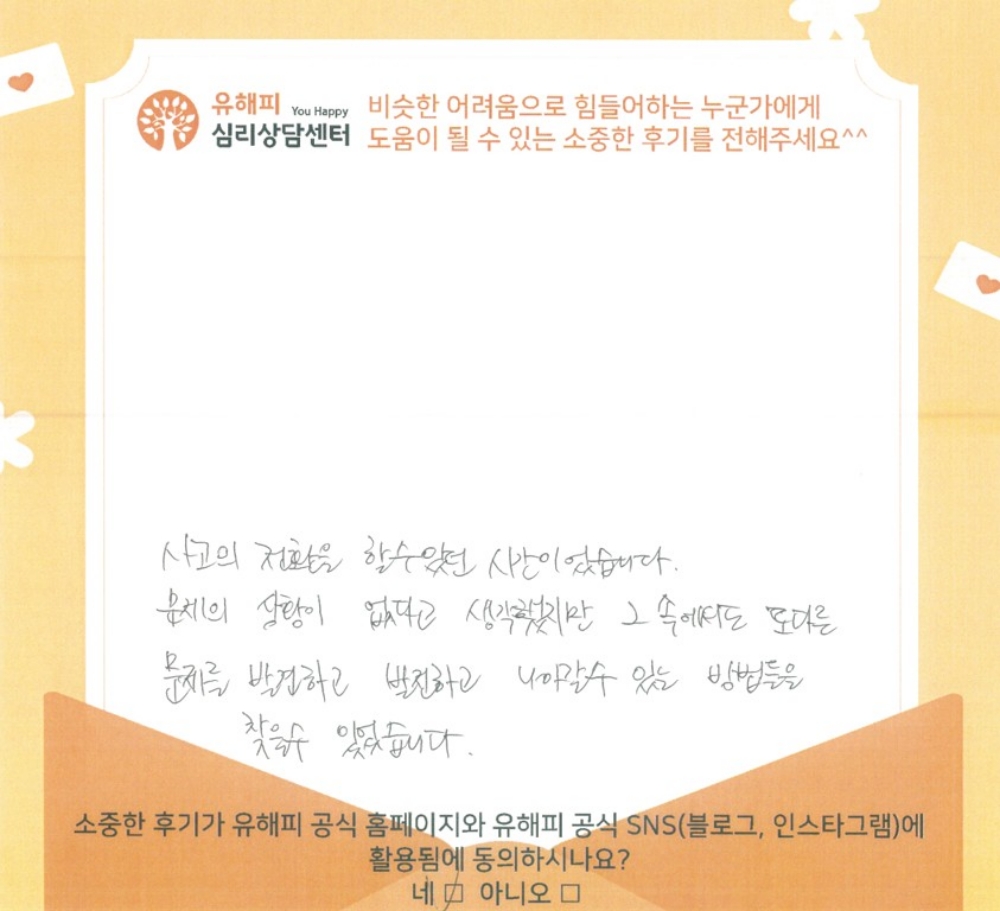 유해피 You Happy
심리상담센터
비슷한 어려움으로 힘들어하는 누군가에게
도움이 될 수 있는 소중한 후기를 전해주세요^^
사고의 전환을 할수있던 시간이었습니다.
문제의 상황이 없다고 생각했지만 그 속에서도 또다른
문제를 발견하고 발전하고 나아갈수 있는 방법들을
찾을수 있었습니다.
소중한 후기가 유해피 공식 홈페이지와 유해피 공식 SNS(블로그, 인스타그램)에
활용됨에 동의하시나요?
네 □ 아니오 □